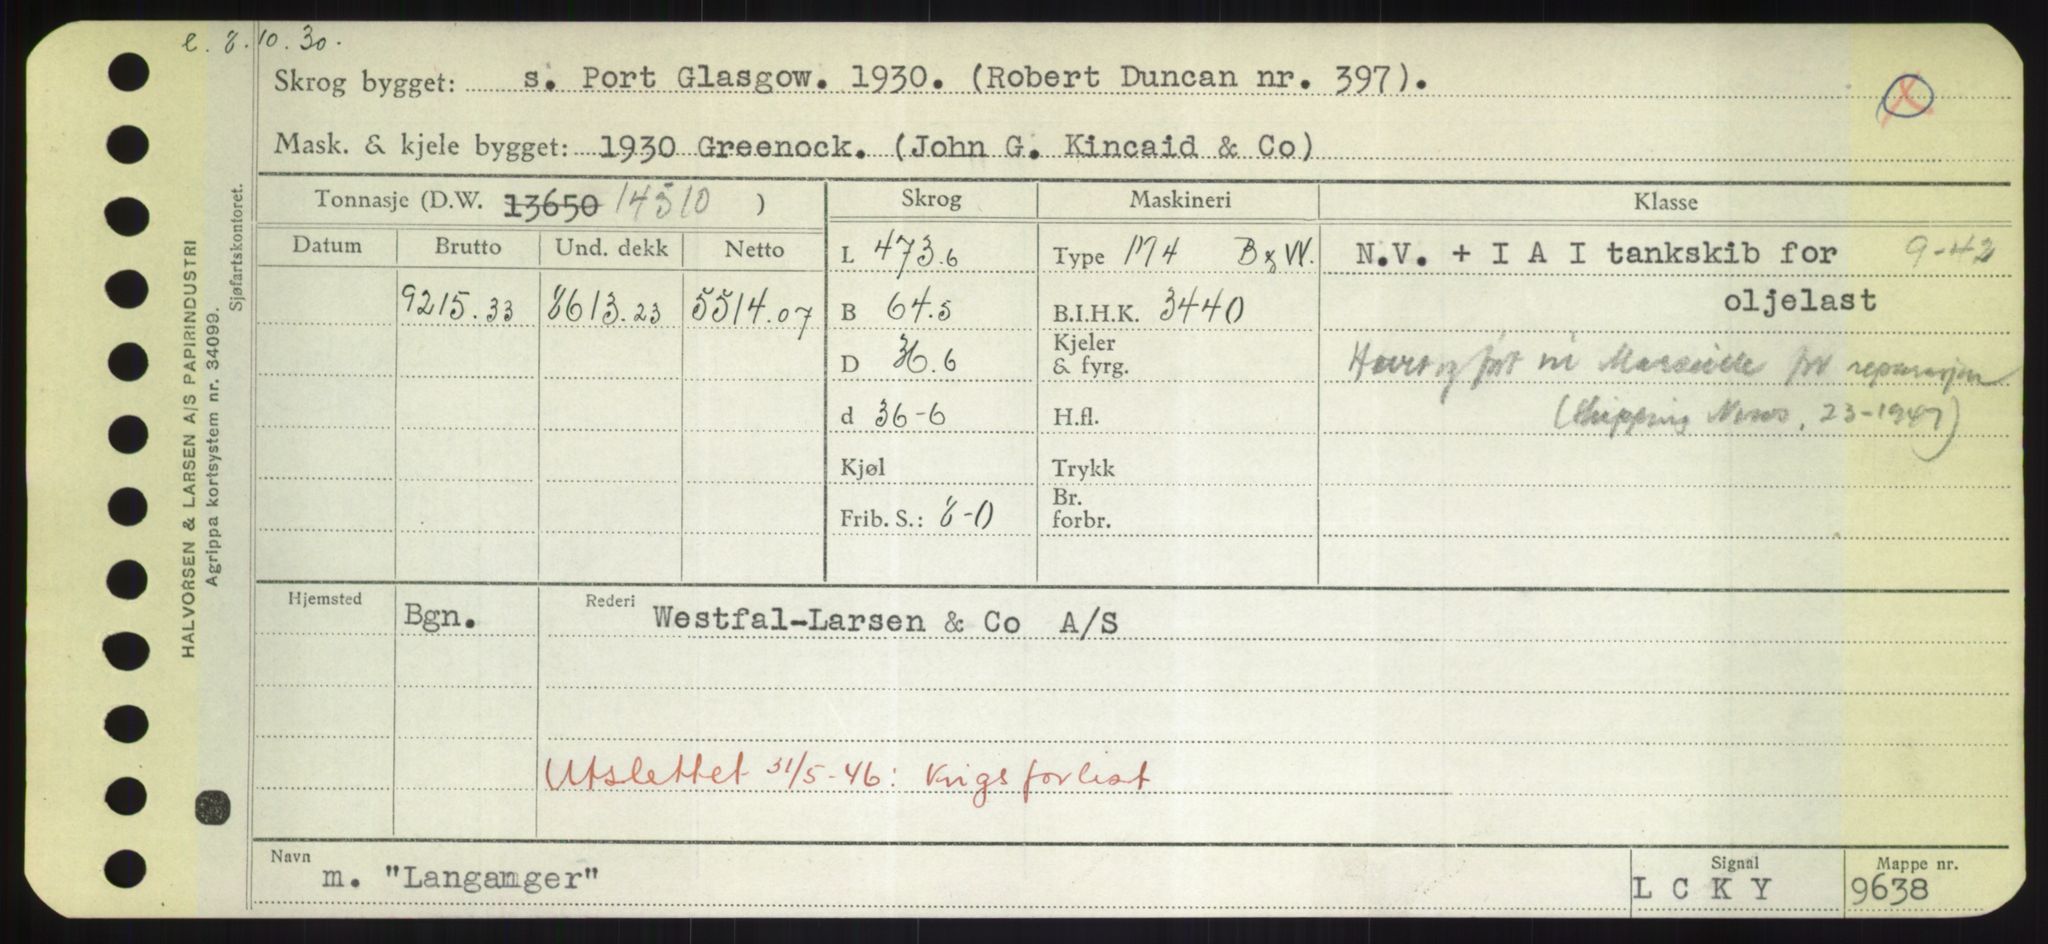 e. 8.10.30.
Skrog bygget: s. Port Glasgow. 1930. (Robert Duncan nr. 397).
Mask. & kjele bygget: 1930 Greenock. (John G. Kincaid & Co)
Tonnasje (D.W. 13650 14510 )
Skrog
Maskineri
Klasse
Datum
Brutto
Und. dekk
Netto
9215.33
8613.23
5514.07
L 473.6
B 64.5
D 36.6
d 36-6
Kjøl
Frib. S.: 8-0
Type M4 B & W.
B.I.H.K. 3440
Kjeler
& fyrg.
H.fl.
Trykk
Br.
forbr.
N.V. + I A I tankskib for 9-42
oljelast
Hevet og ført til Marseille for reparasjon
(Shipping News, 23-1947)
Hjemsted
Bgn.
Rederi
Westfal-Larsen & Co A/S
Utslettet 31/5-46: Krigsforlist
Navn
m. "Langanger"
Signal
L C K Y
Mappe nr.
9638
HALVORSEN & LARSEN A/S PAPIRINDUSTRI
Agrippa kortsystem nr. 34099.
Sjøfartskontoret.